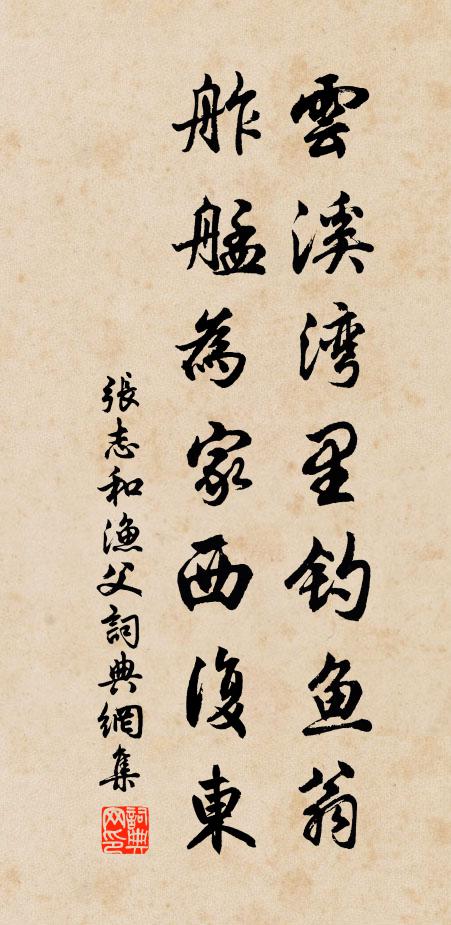 雲溪湾里钓鱼翁
舴艋為家西復東
張志和漁父詞典網集
詞典网印